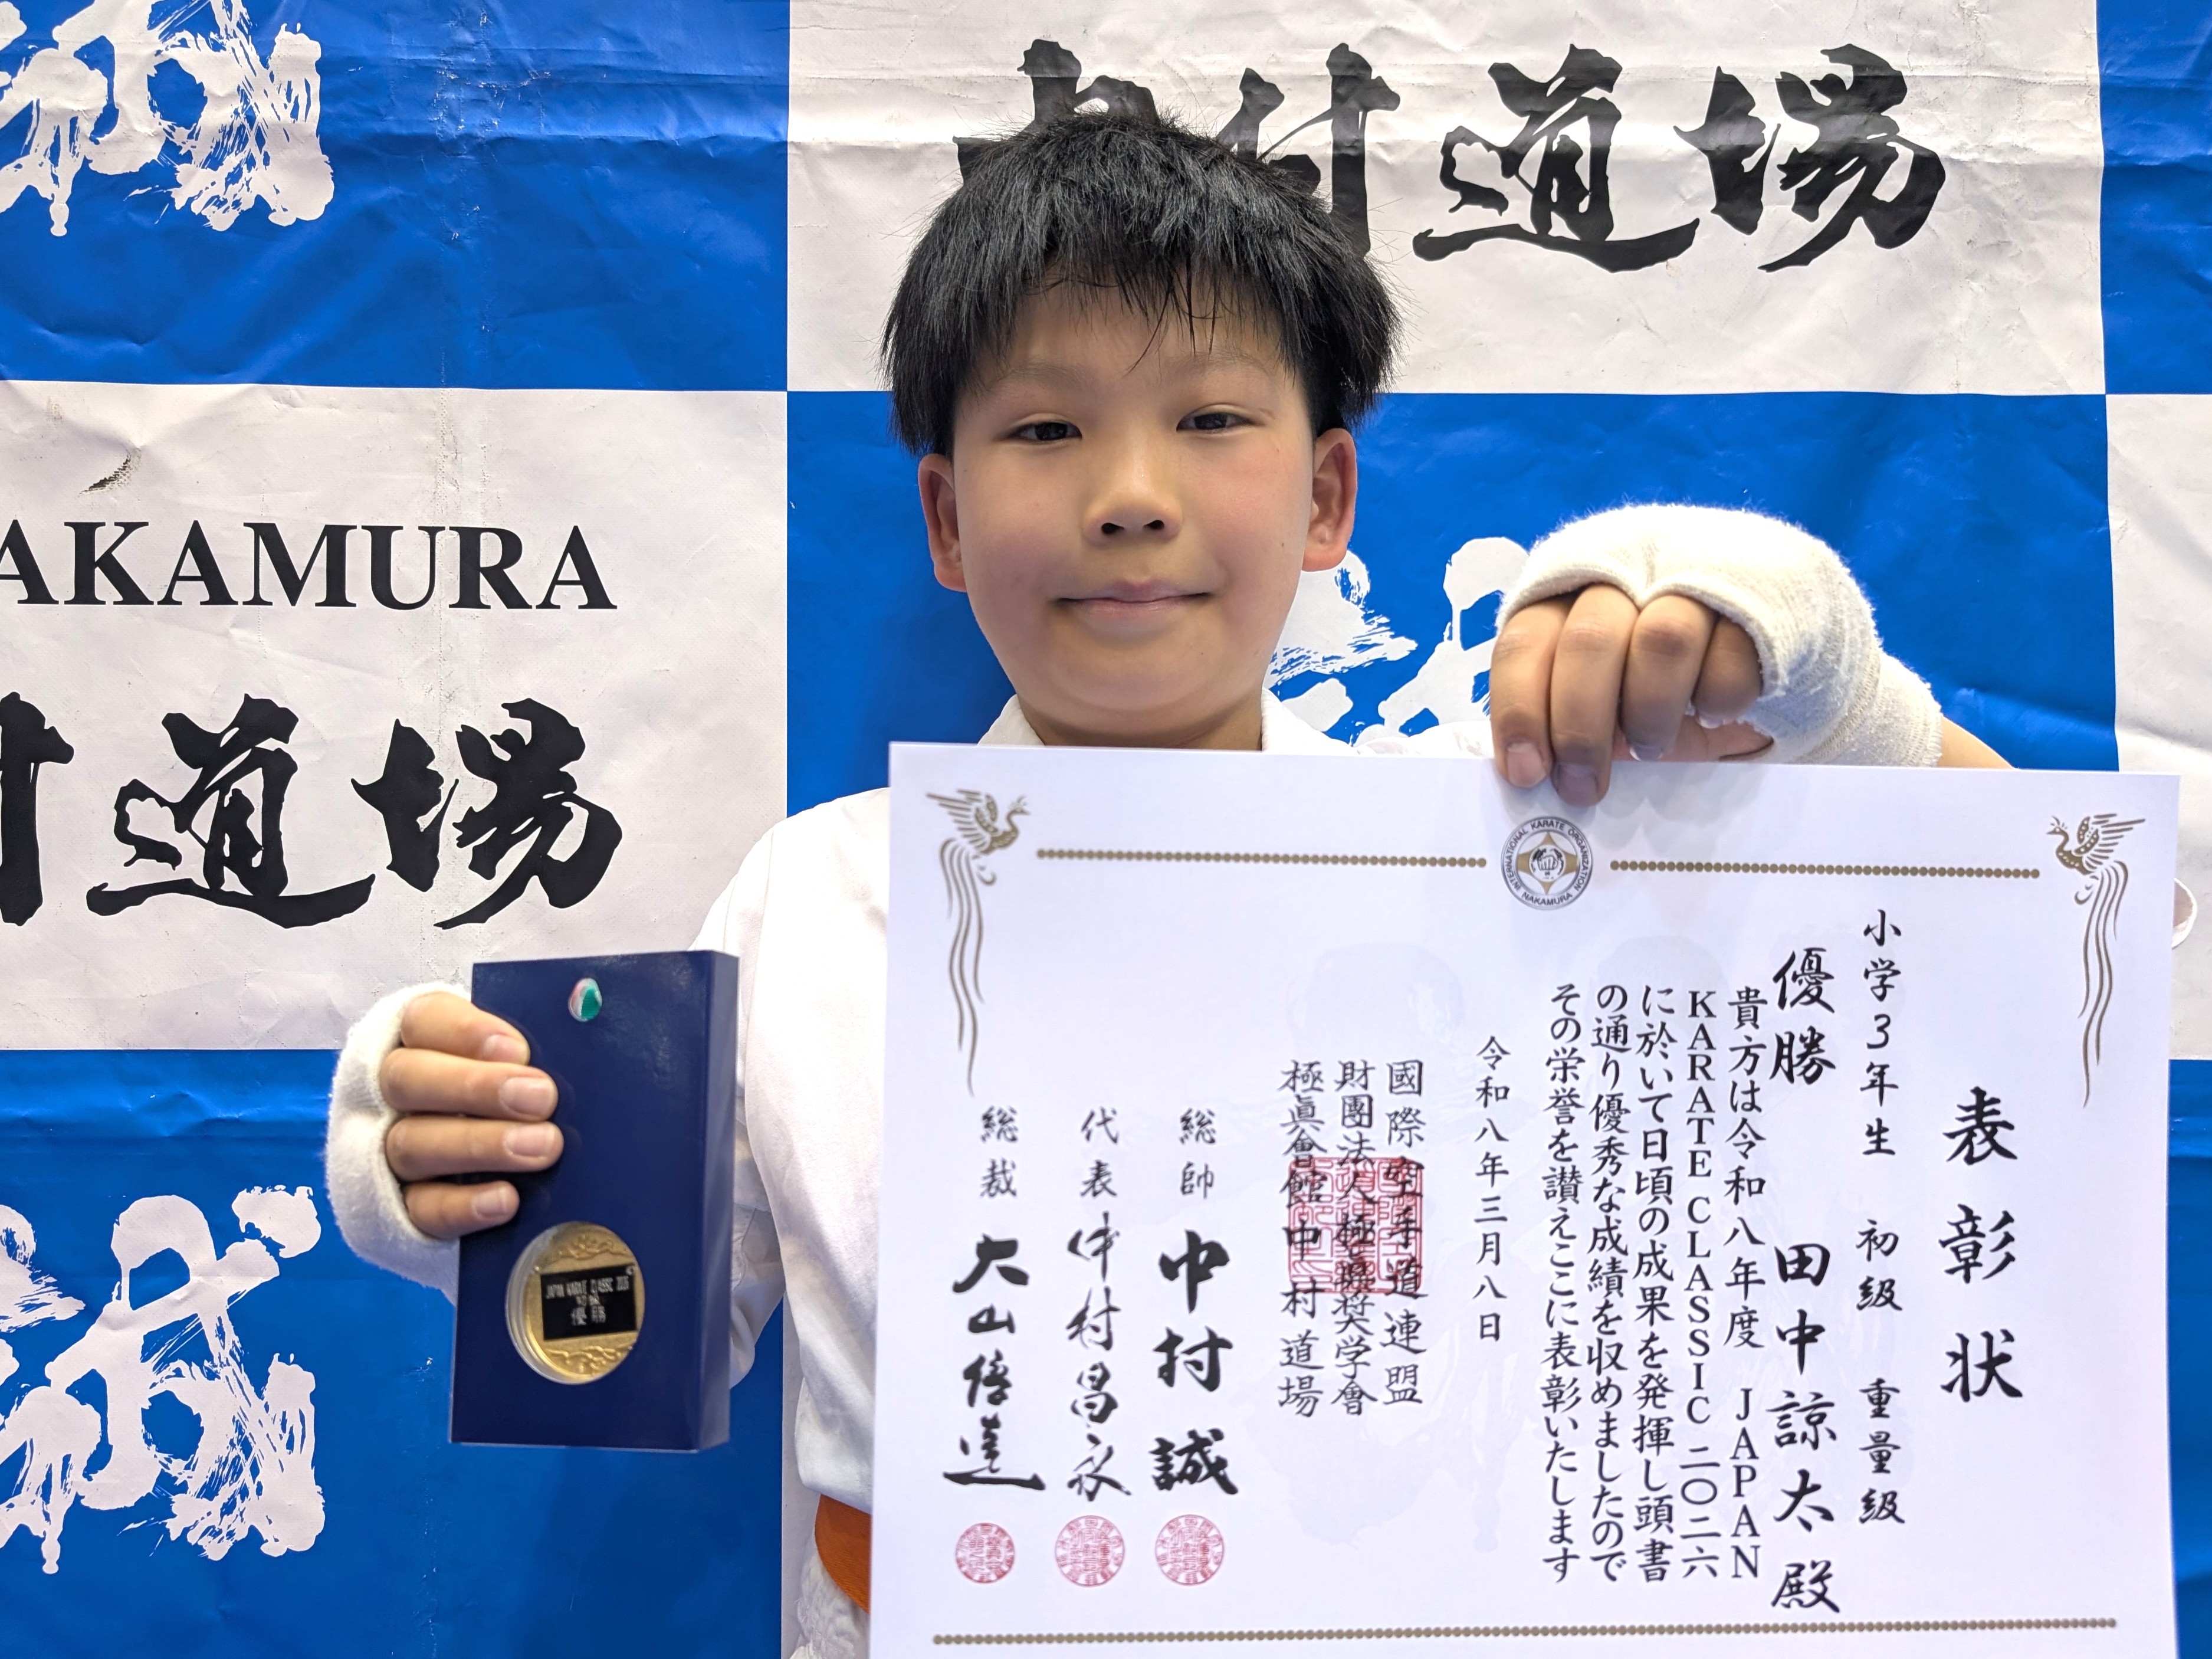 道場
AKAMURA
村道場
INTERNATIONAL KARATE ORGANIZATION
NAKAMURA
表彰状
小学3年生 初級 重量級
優勝 田中諒太殿
貴方は令和八年度 JAPAN
KARATE CLASSIC 二〇二六
に於いて日頃の成果を発揮し頭書
の通り優秀な成績を収めましたので
その栄誉を讃えここに表彰いたします
令和八年三月八日
國際空手道連盟
財團法人極真奨学會
極眞會館中村道場
総帥 中村誠
代表 中村昌永
総裁 大山倍達
JAPAN KARATE CLASSIC 2026
初級
優勝